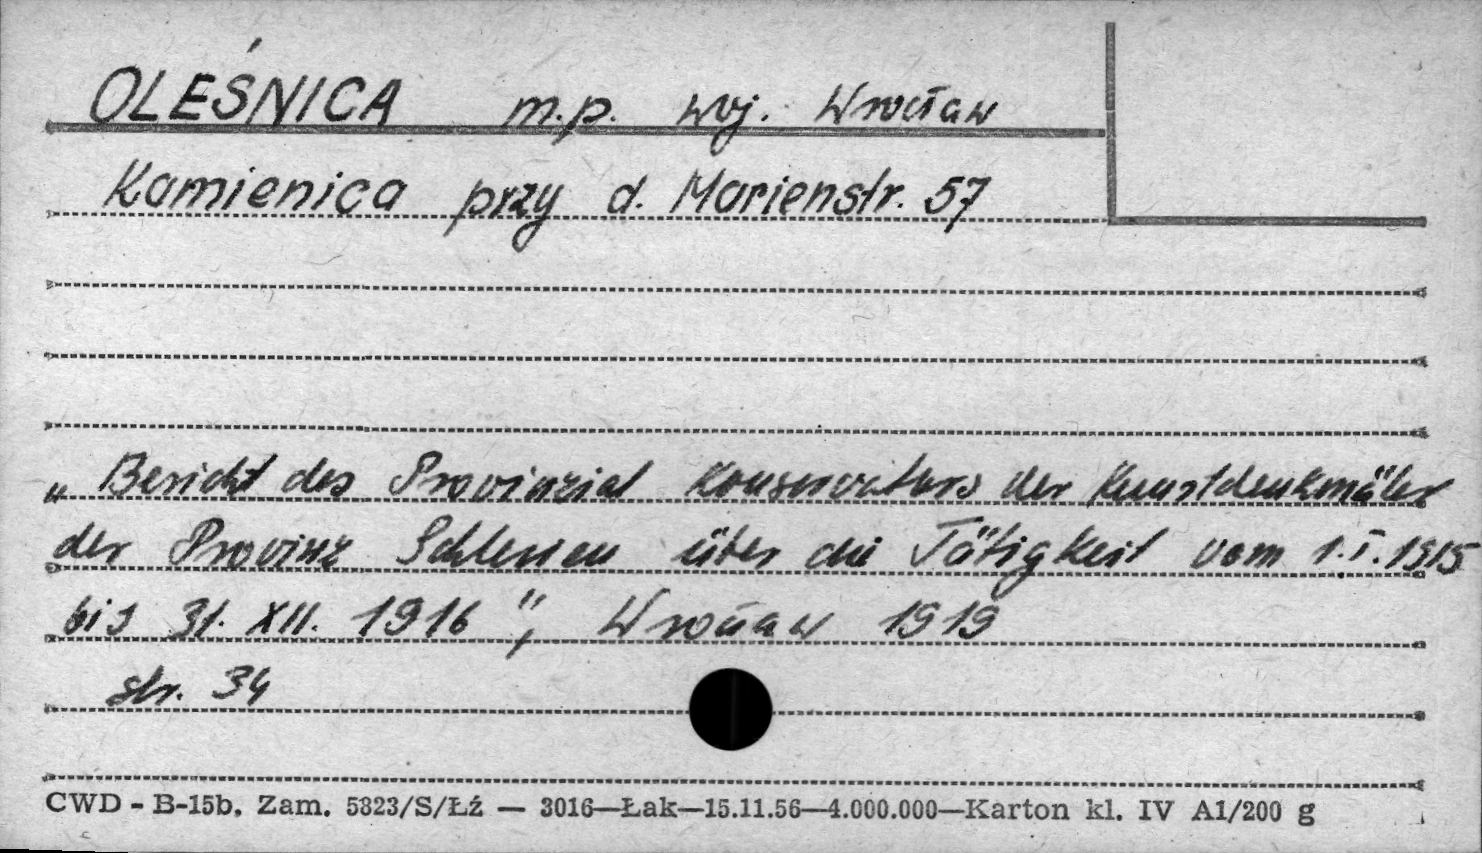 OLEŚNICA m.p. woj. Wrocław
Kamienica przy d. Marienstr. 57
„Bericht des Provinzial Konservators der Kunstdenkmäler
der Provinz Schlesien über die Tätigkeit vom 1.I.1915
bis 31. XII. 1916", Wrocław 1919
str. 34
CWD - B-15b. Zam. 5323/S/Łź — 3016—Łak—15.11.56—4.000.000—Karton kl. IV A1/200 g